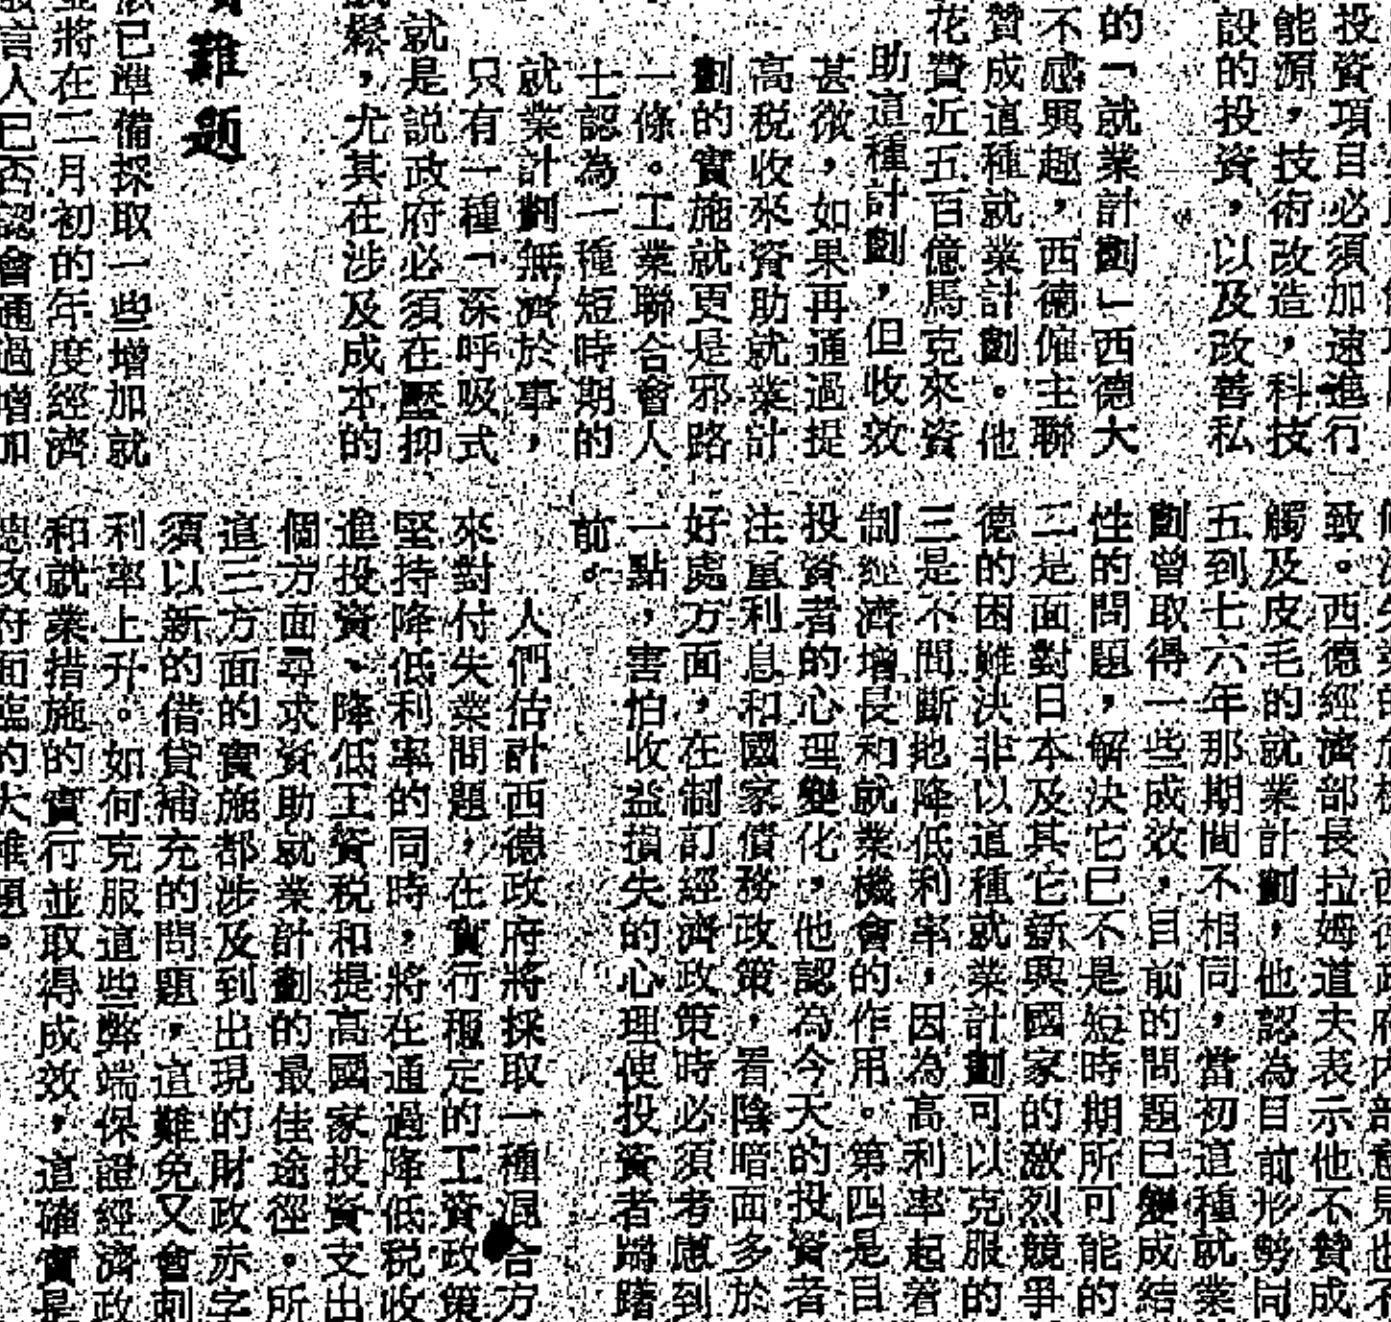 投資項目必須加速進行
能源，技術改造，科技
設的投資，以及改善私
的「就業計劃」西德大
不感興趣，西德僱主聯
贊成這種就業計劃。他
花費近五百億馬克來資
助這種計劃，但收效
甚微，如果再通過提
高税收來資助就業計
劃的實施就更是邪路
一條。工業聯合會人
士認為一種短時期的
就業計劃無濟於事，
只有一種「深呼吸式
就是説政府必須在壓抑
鬆，尤其在涉及成本的
難題
已準備採取一些增加就
將在二月初的年度經濟
言人已否認會通過增加
致。西德經濟部長拉姆道夫表示他不贊成
觸及皮毛的就業計劃，他認為目前形勢同
五到七六年那期間不相同，當初這種就業
劃曾取得一些成效，目前的問題已變成結
性的問題，解決它已不是短時期所可能的
二是面對日本及其它新興國家的激烈競爭
德的困難決非以這種就業計劃可以克服的
三是不間斷地降低利率，因為高利率起着
制經濟增長和就業機會的作用。第四是目
投資者的心理變化，他認為今天的投資者
注重利息和國家債務政策，看陰暗面多於
好處方面，在制訂經濟政策時必須考慮到
一點，害怕收益損失的心理使投資者躊躇
前。
人們估計西德政府將採取一種混合方
來對付失業問題，在實行穩定的工資政策
堅持降低利率的同時，將在通過降低税收
進投資、降低工資税和提高國家投資支出
個方面尋求資助就業計劃的最佳途徑。所
這三方面的實施都涉及到出現的財政赤字
須以新的借貸補充的問題，這難免又會刺
利率上升。如何克服這些弊端保證經濟政
和就業措施的實行並取得成效，這確實是
政府面臨的大難題。